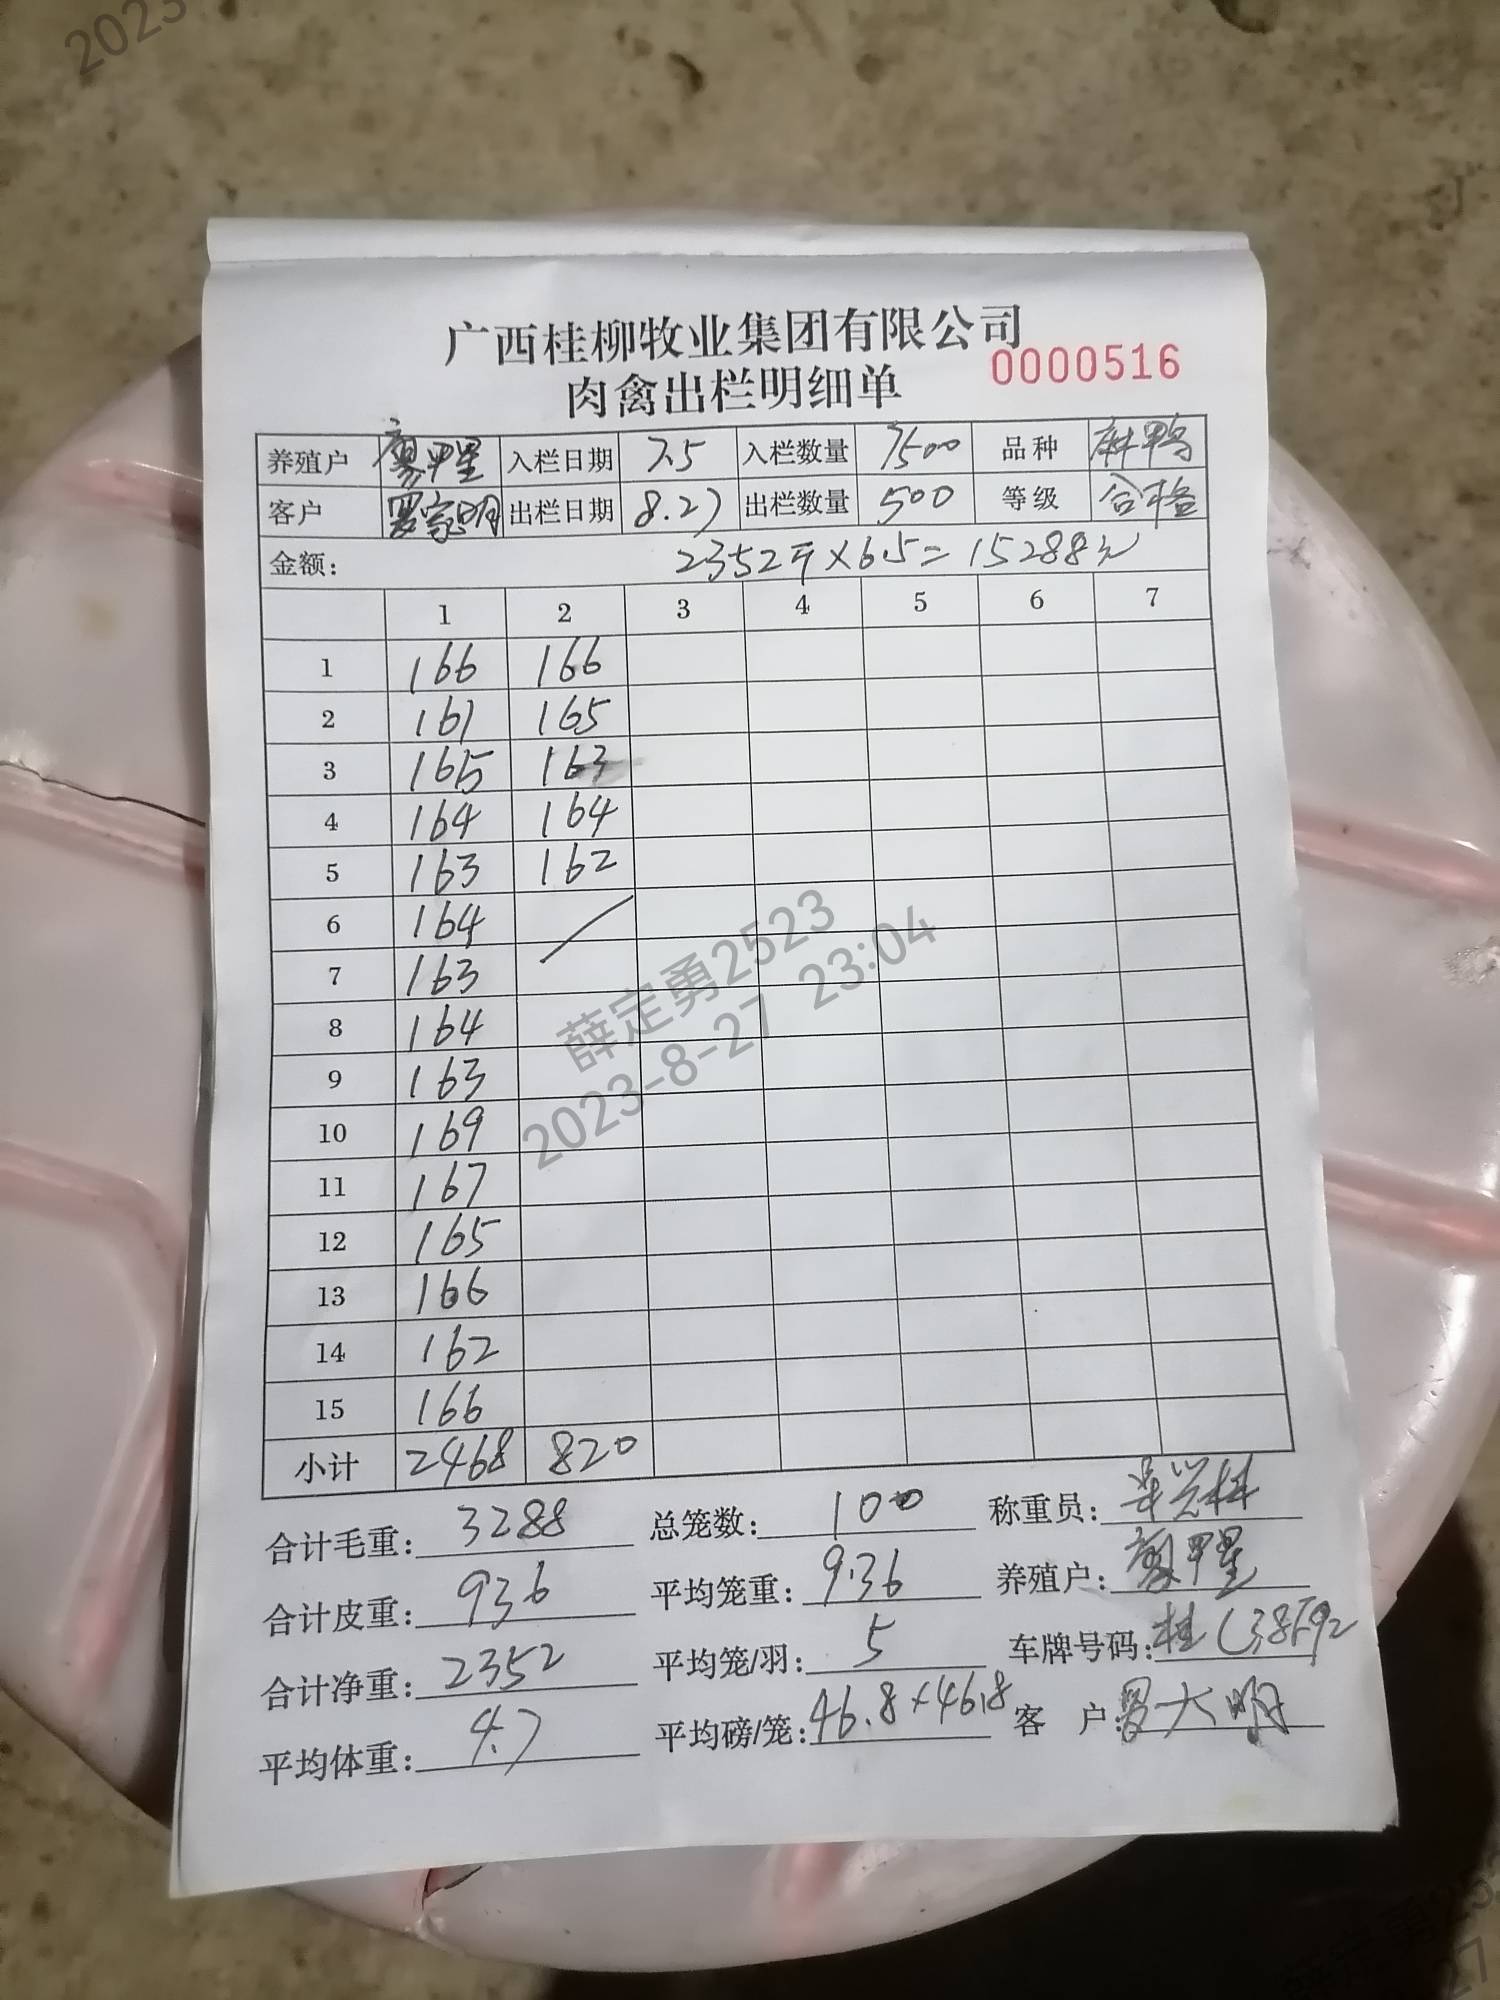 2023
广西桂柳牧业集团有限公司
肉禽出栏明细单 0000516
养殖户 廖甲星 入栏日期 7.5 入栏数量 7500 品种 麻鸭
客户 罗家明 出栏日期 8.27 出栏数量 500 等级 合格
金额: 2352斤×6.5=15288元
1 2 3 4 5 6 7
1 166 166
2 161 165
3 165 163
4 164 164
5 163 162
6 164
7 163
8 164
9 163
10 169
11 167
12 165
13 166
14 162
15 166
小计 2468 820
薛定勇2523
2023-8-27 23:04
合计毛重: 3288 总笼数: 100 称重员:
合计皮重: 936 平均笼重: 9.36 养殖户: 廖甲星
合计净重: 2352 平均笼/羽: 5 车牌号码: 桂
平均体重: 4.7 平均磅/笼: 46.8×46.8 客户: 罗大明
薛定勇25
27